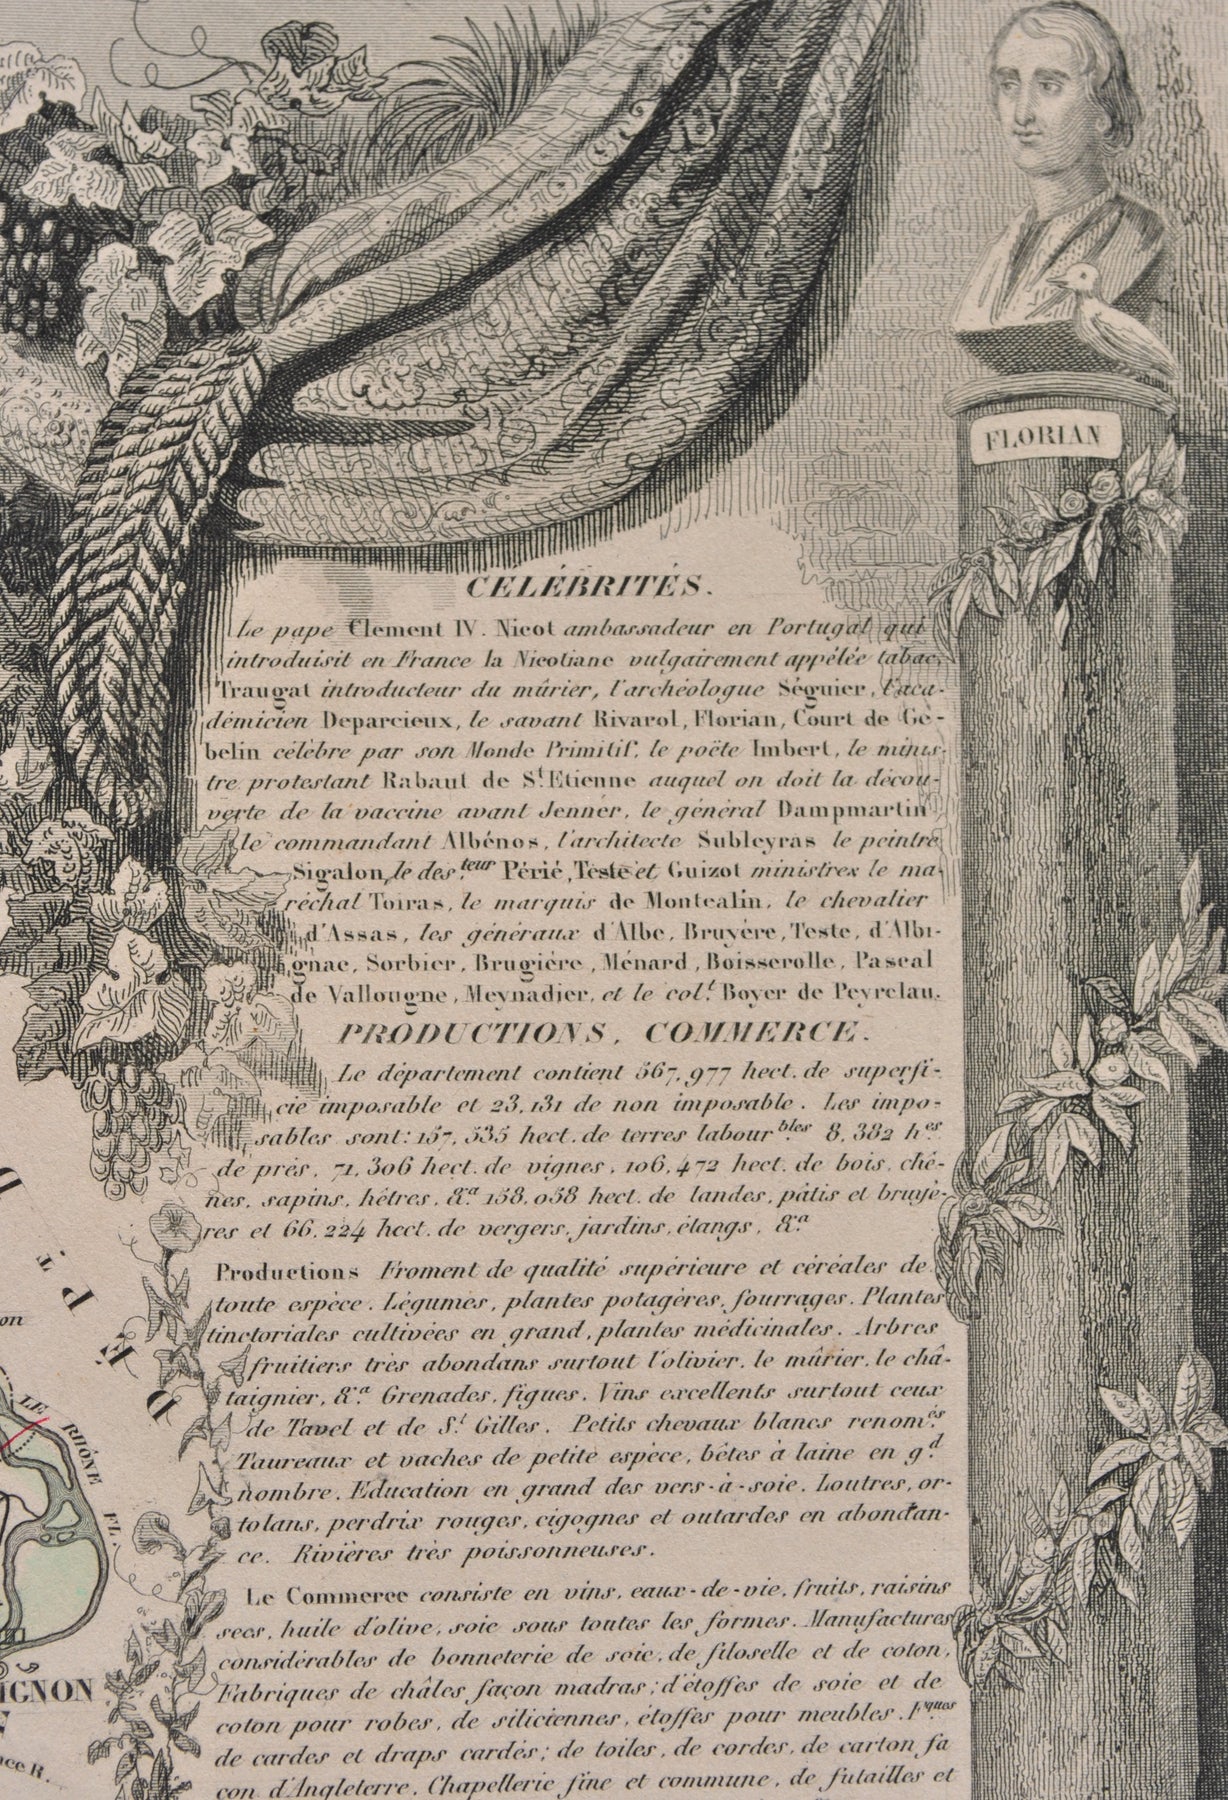 FLORIAN
CELÉBRITÉS.
Le pape Clement IV. Nicot ambassadeur en Portugal qui
introduisit en France la Nicotiane vulgairement appélée tabac,
Traugat introducteur du mûrier, l'archéologue Séguier, l'aca-
démicien Deparcieux, le savant Rivarol, Florian, Court de Gé-
belin célèbre par son Monde Primitif, le poëte Imbert, le minis-
tre protestant Rabaut de St. Etienne auquel on doit la décou-
verte de la vaccine avant Jenner, le général Dampmartin
le commandant Albénos, l'architecte Subleyras le peintre
Sigalon, le des.teur Périé, Teste et Guizot ministres le ma-
réchal Toiras, le marquis de Montcalin, le chevalier
d'Assas, les généraux d'Albe, Bruyère, Teste, d'Albi-
gnac, Sorbier, Brugière, Ménard, Boisserolle, Pascal
de Vallougne, Meynadier, et le col.t Boyer de Peyrelau.
PRODUCTIONS, COMMERCE.
Le département contient 567,977 hect. de superfi-
cie imposable et 23,131 de non imposable. Les impo-
sables sont: 157,535 hect. de terres labour.bles 8,382 h.es
de prés, 71,306 hect. de vignes, 106,472 hect. de bois, chê-
nes, sapins, hêtres, &.a 158,058 hect. de landes, pâtis et bruyè-
res et 66,224 hect. de vergers, jardins, étangs, &.a
Productions Froment de qualité supérieure et céréales de
toute espèce. Légumes, plantes potagères, fourrages. Plantes
tinctoriales cultivées en grand, plantes médicinales. Arbres
fruitiers très abondans surtout l'olivier, le mûrier, le châ-
taignier, &.a Grenades, figues. Vins excellents surtout ceux
de Tavel et de St. Gilles. Petits chevaux blancs renom.és
Taureaux et vaches de petite espèce, bêtes à laine en g.d
nombre. Education en grand des vers-à-soie. Loutres, or-
tolans, perdrix rouges, cigognes et outardes en abondan-
ce. Rivières très poissonneuses.
Le Commerce consiste en vins, eaux-de-vie, fruits, raisins
secs, huile d'olive, soie sous toutes les formes. Manufactures
considérables de bonneterie de soie, de filoselle et de coton,
Fabriques de châles façon madras; d'étoffes de soie et de
coton pour robes, de siliciennes, étoffes pour meubles. F.ques
de cardes et draps cardés; de toiles, de cordes, de carton fa
çon d'Angleterre. Chapellerie fine et commune, de futailles et
DÉPT. D
on
LE RHÔNE FL.
IGNON
nce R.